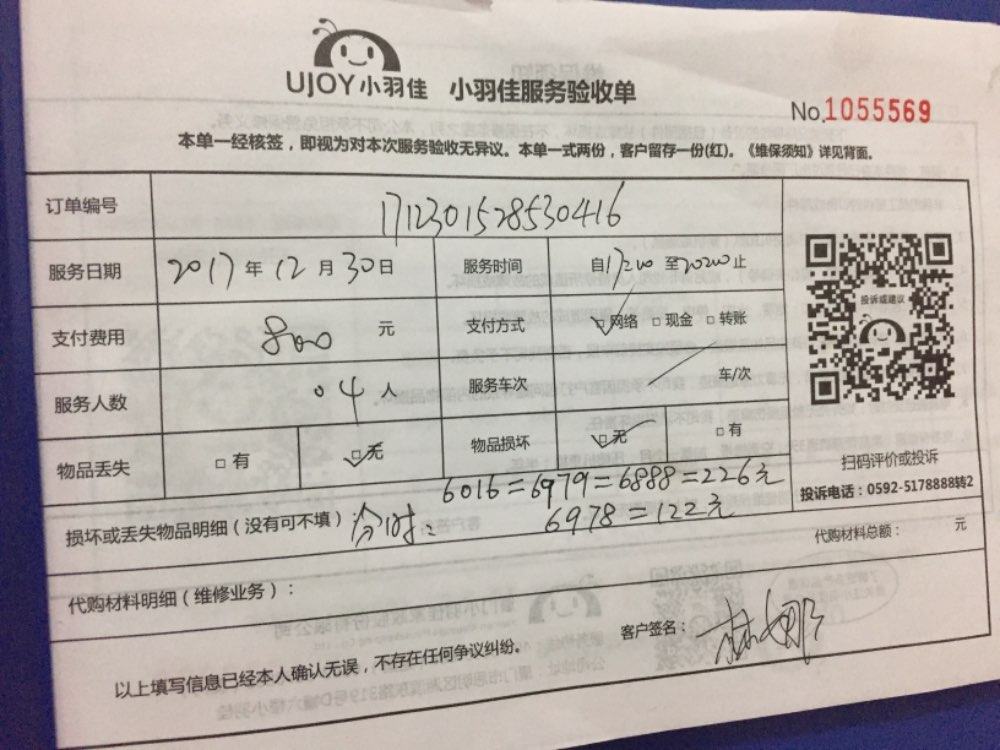 UJOY小羽佳 小羽佳服务验收单
No.1055569
本单一经核签，即视为对本次服务验收无异议。本单一式两份，客户留存一份(红)。《维保须知》详见背面。
订单编号 1712301528530416
服务日期 2017年12月30日 服务时间 自17200至20200止
支付费用 800 元 支付方式 网络 现金 转账
投诉或建议
服务人数 04人 服务车次 车/次
物品丢失 有 无 物品损坏 无 有
扫码评价或投诉
投诉电话：0592-5178888转2
6016=6979=6888=226元
损坏或丢失物品明细（没有可不填） 分时： 6978=122元
代购材料总额： 元
代购材料明细（维修业务）：
客户签名：
以上填写信息已经本人确认无误，不存在任何争议纠纷。